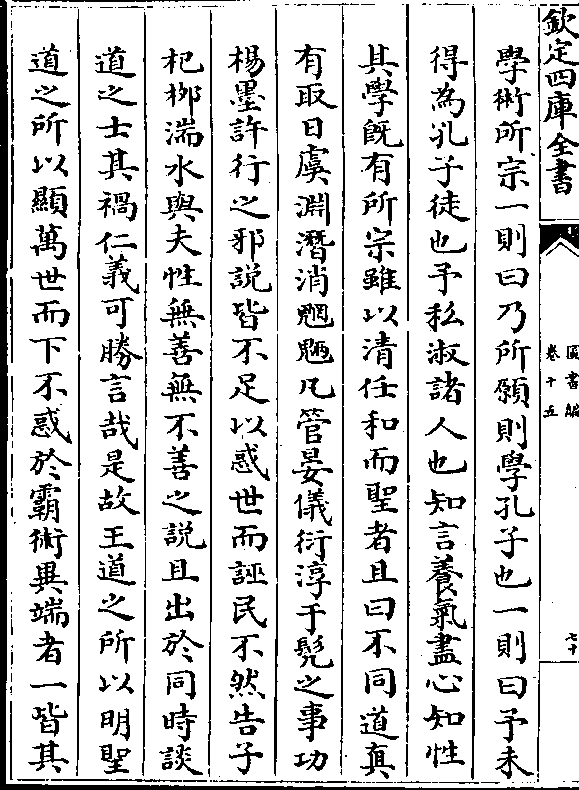 欽定四庫全書
圖書編
卷十五
七十
學術所宗一則曰乃所願則學孔子也一則曰予未
得為孔子徒也予私淑諸人也知言養氣盡心知性
其學既有所宗雖以清任和而聖者且曰不同道真
有取日虞淵潛消魍魎凡管晏儀衍淳于髠之事功
楊墨許行之邪說皆不足以惑世而誣民不然告子
杞柳湍水與夫性無善無不善之說且出於同時談
道之士其禍仁義可勝言哉是故王道之所以明聖
道之所以顯萬世而下不惑於霸術異端者一皆其